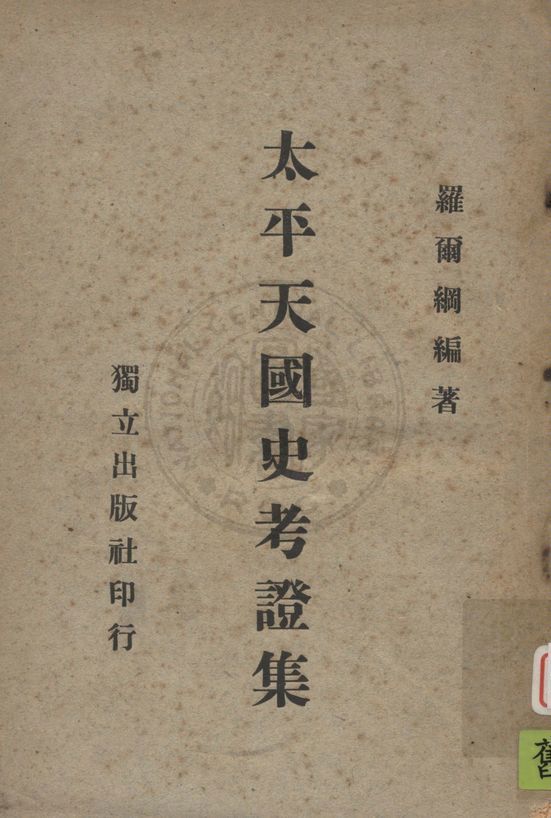 羅爾綱編著
太平天國史考證集
獨立出版社印行
舊